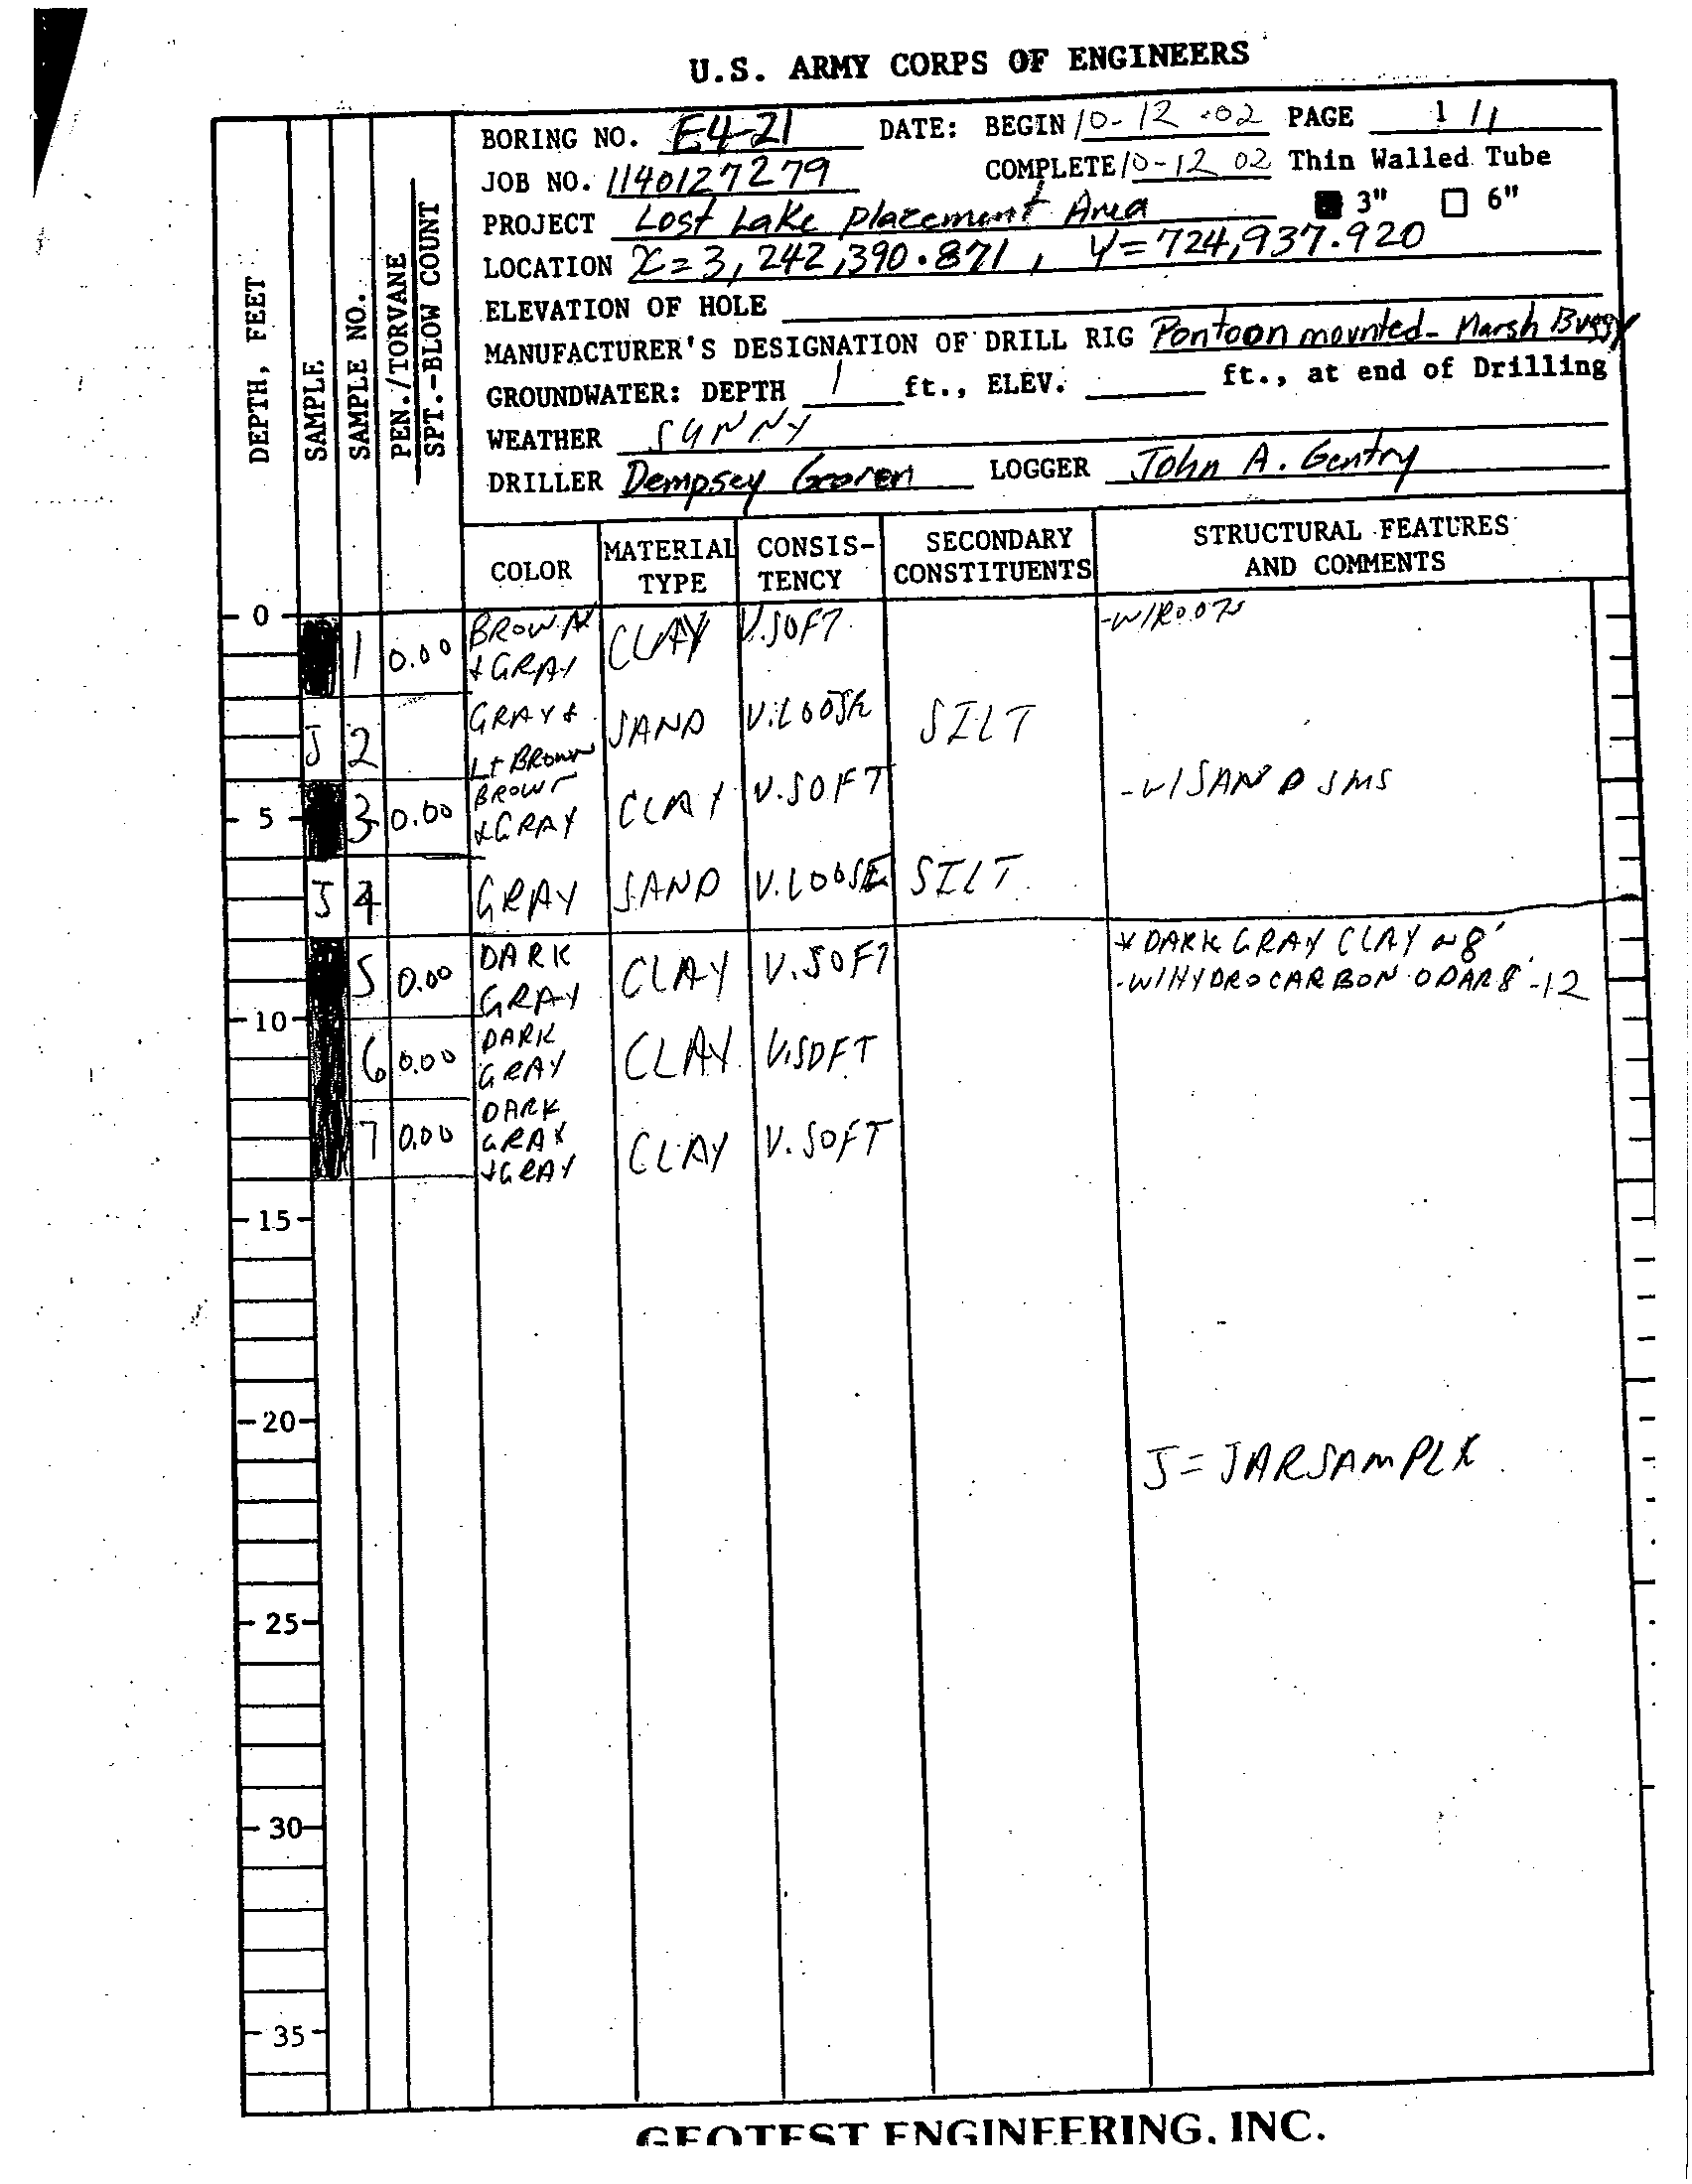 U.S. ARMY CORPS OF ENGINEERS
DEPTH, FEET
SAMPLE
SAMPLE NO.
PEN./TORVANE
SPT.-BLOW COUNT
BORING NO. E4-21 DATE: BEGIN 10-12-02 PAGE 1/1
JOB NO. 1140127279 COMPLETE 10-12 02 Thin Walled Tube
PROJECT Lost Lake placement Area 3" 6"
LOCATION X=3,242,390.871, Y=724,937.920
ELEVATION OF HOLE
MANUFACTURER'S DESIGNATION OF DRILL RIG Pontoon mounted- Marsh Buggy
GROUNDWATER: DEPTH 1 ft., ELEV. ft., at end of Drilling
WEATHER SUNNY
DRILLER Dempsey LOGGER John A. Gentry
COLOR MATERIAL TYPE CONSIS-TENCY SECONDARY CONSTITUENTS STRUCTURAL FEATURES AND COMMENTS
0
1 0.00 BROWN & GRAY CLAY V.SOFT -W/ROOTS
J 2 GRAY & Lt BROWN SAND V.LOOSE SILT
5 3 0.00 BROWN & GRAY CLAY V.SOFT -W/SAND SMS
J 4 GRAY SAND V.LOOSE SILT
5 0.00 DARK GRAY CLAY V.SOFT * DARK GRAY CLAY ~8'
-W/HYDROCARBON ODAR 8'-12
10
6 0.00 DARK GRAY CLAY V.SOFT
7 0.00 DARK GRAY & GRAY CLAY V.SOFT
15
20
J = JARSAMPLE
25
30
35
GEOTEST ENGINEERING, INC.